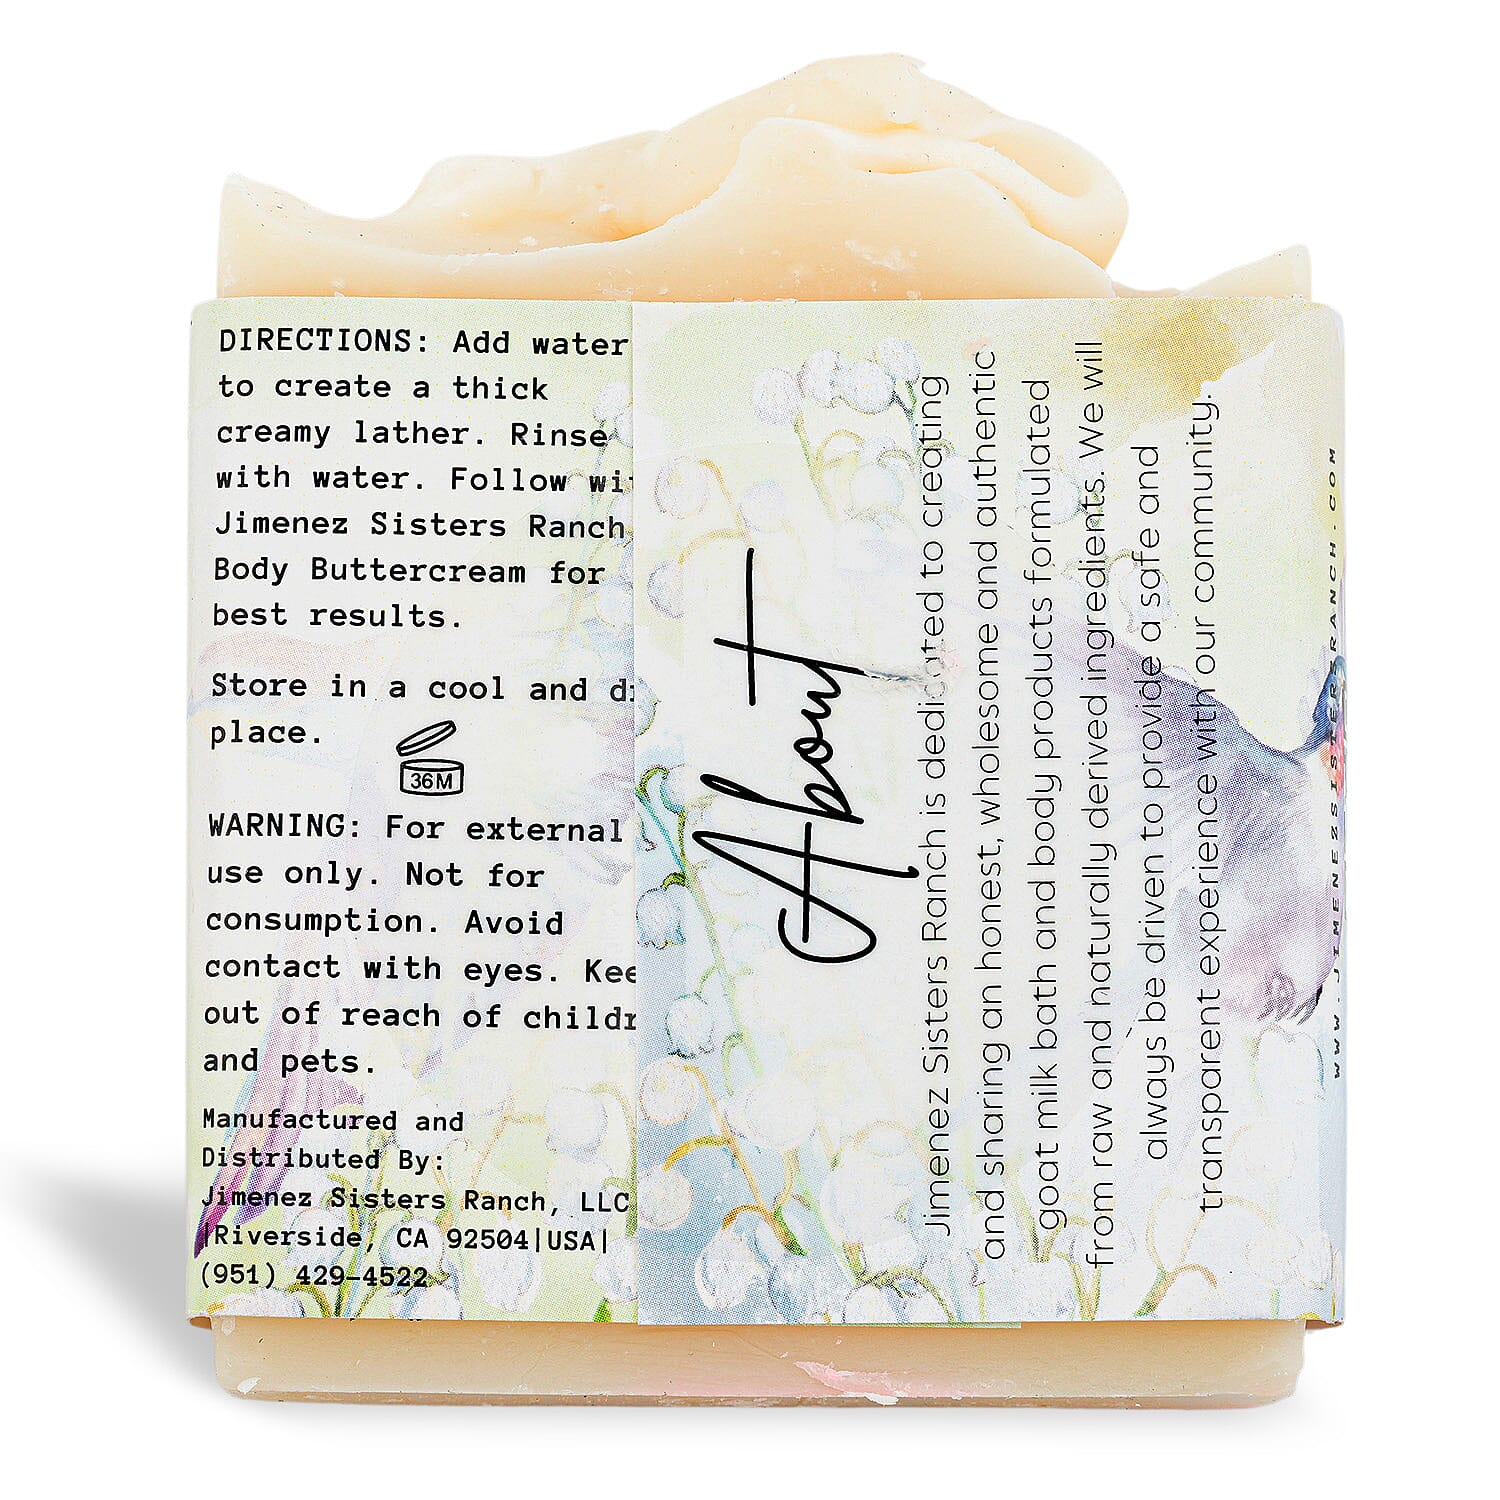 DIRECTIONS: Add water
to create a thick
creamy lather. Rinse
with water. Follow wi
Jimenez Sisters Ranch
Body Buttercream for
best results.
Store in a cool and
place.
36M
WARNING: For external
use only. Not for
consumption. Avoid
contact with eyes. Kee
out of reach of childr
and pets.
Manufactured and
Distributed By:
Jimenez Sisters Ranch, LLC
|Riverside, CA 92504|USA|
(951) 429-4522
About
Jimenez Sisters Ranch is dedicated to creating
and sharing an honest, wholesome and authentic
goat milk bath and body products formulated
from raw and naturally derived ingredients. We will
always be driven to provide a safe and
transparent experience with our community.
WWW.JIMENEZSISTERSRANCH.COM